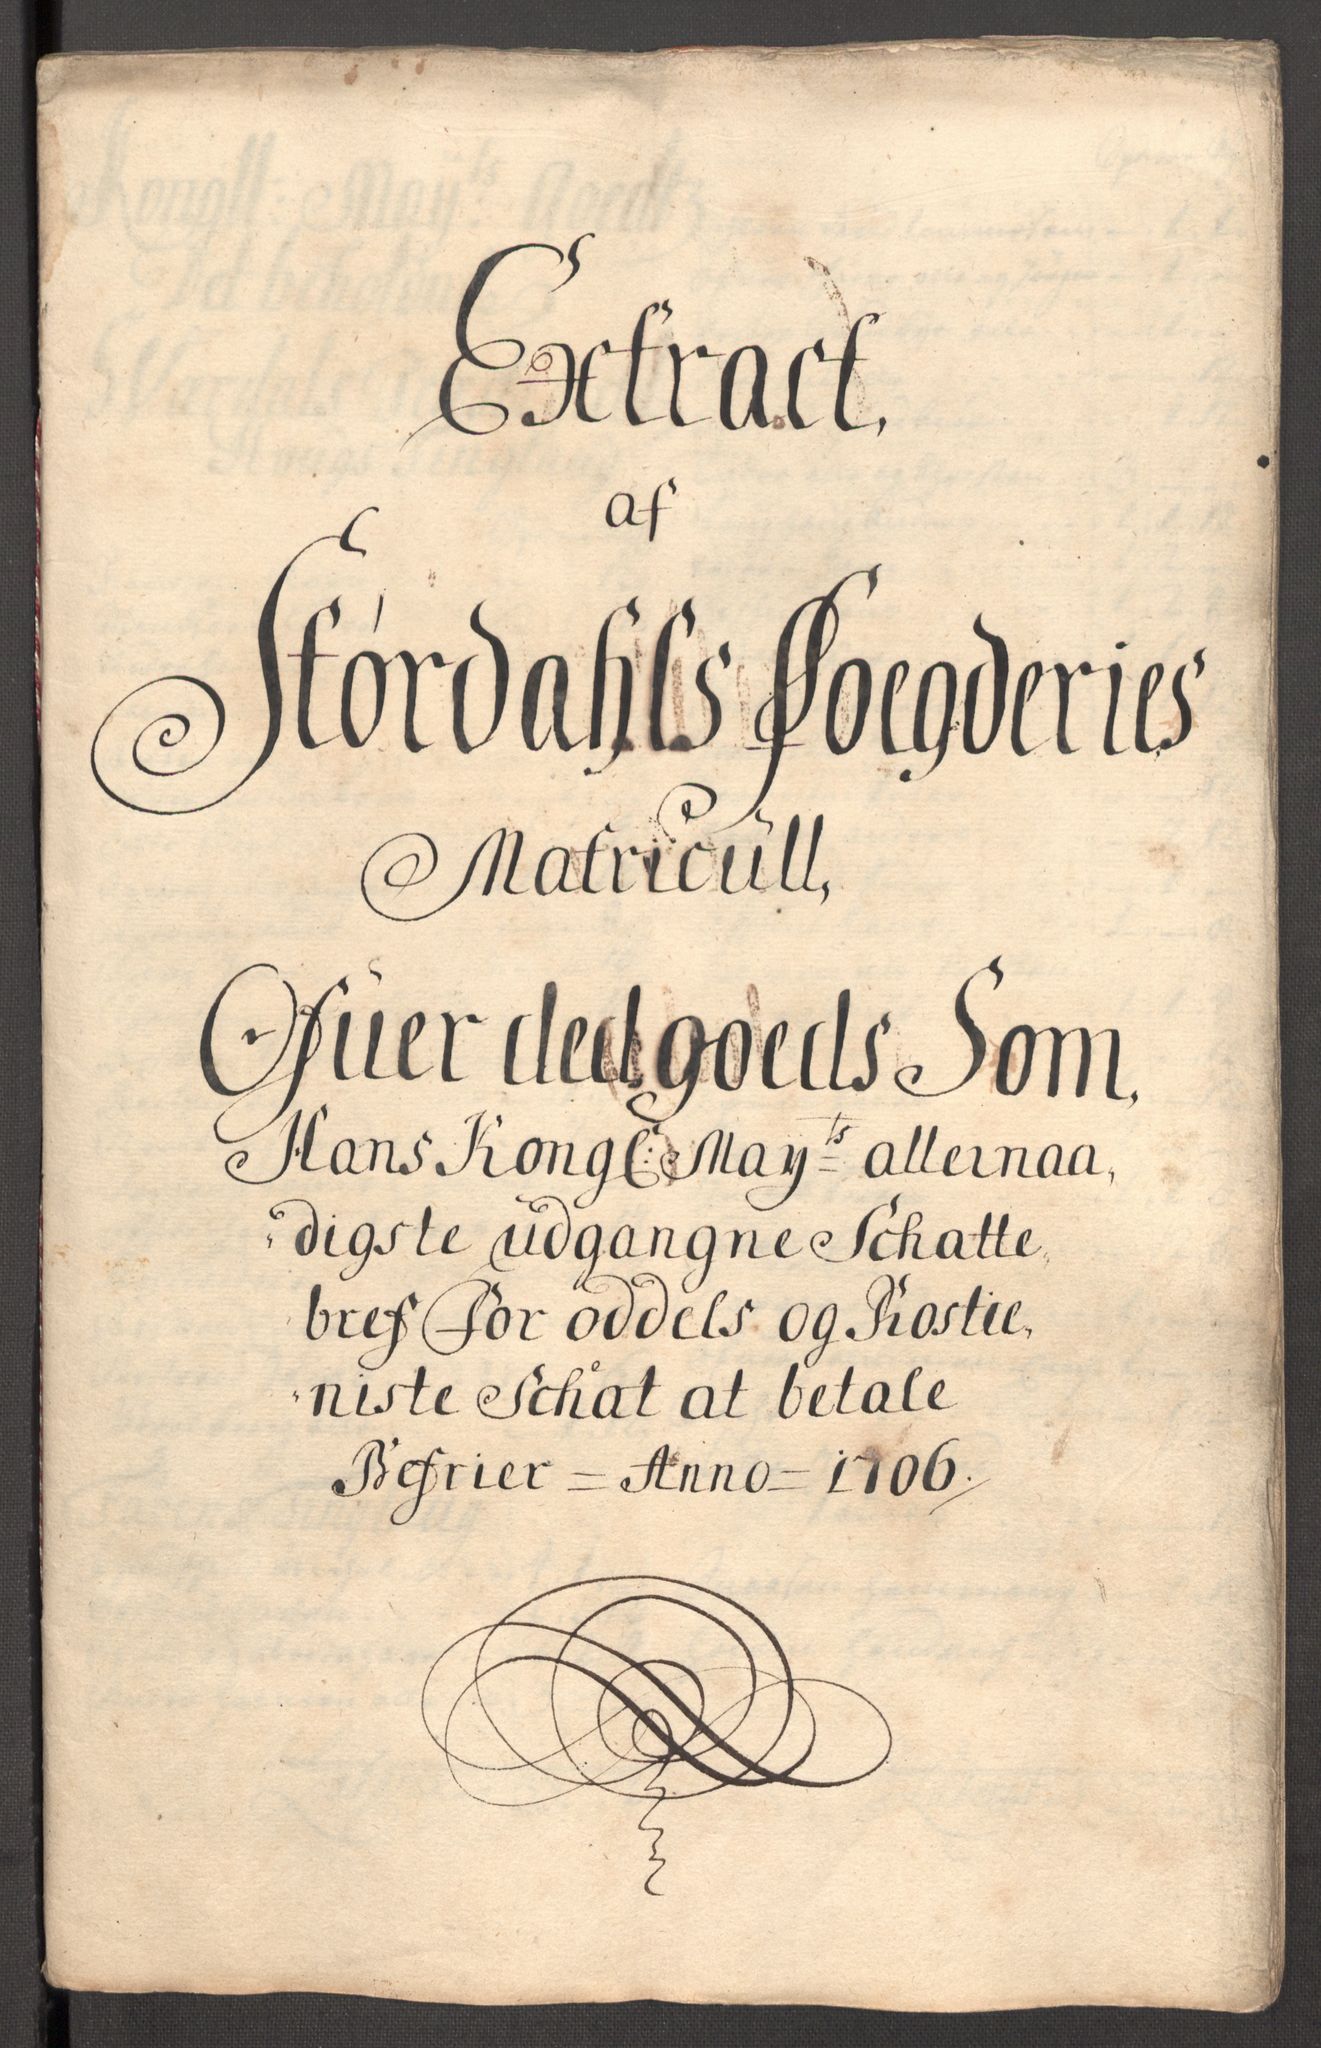 Extract,
af
Stórdahls Foegderies
Matricùll,
Ofùer ded goeds Som,
Hans Kongl: Mayts allernaa,
digste ùdgangne Schatte,
bref For oddels og Rostie,
niste Schat at betale
Befrier = Anno = 1706.